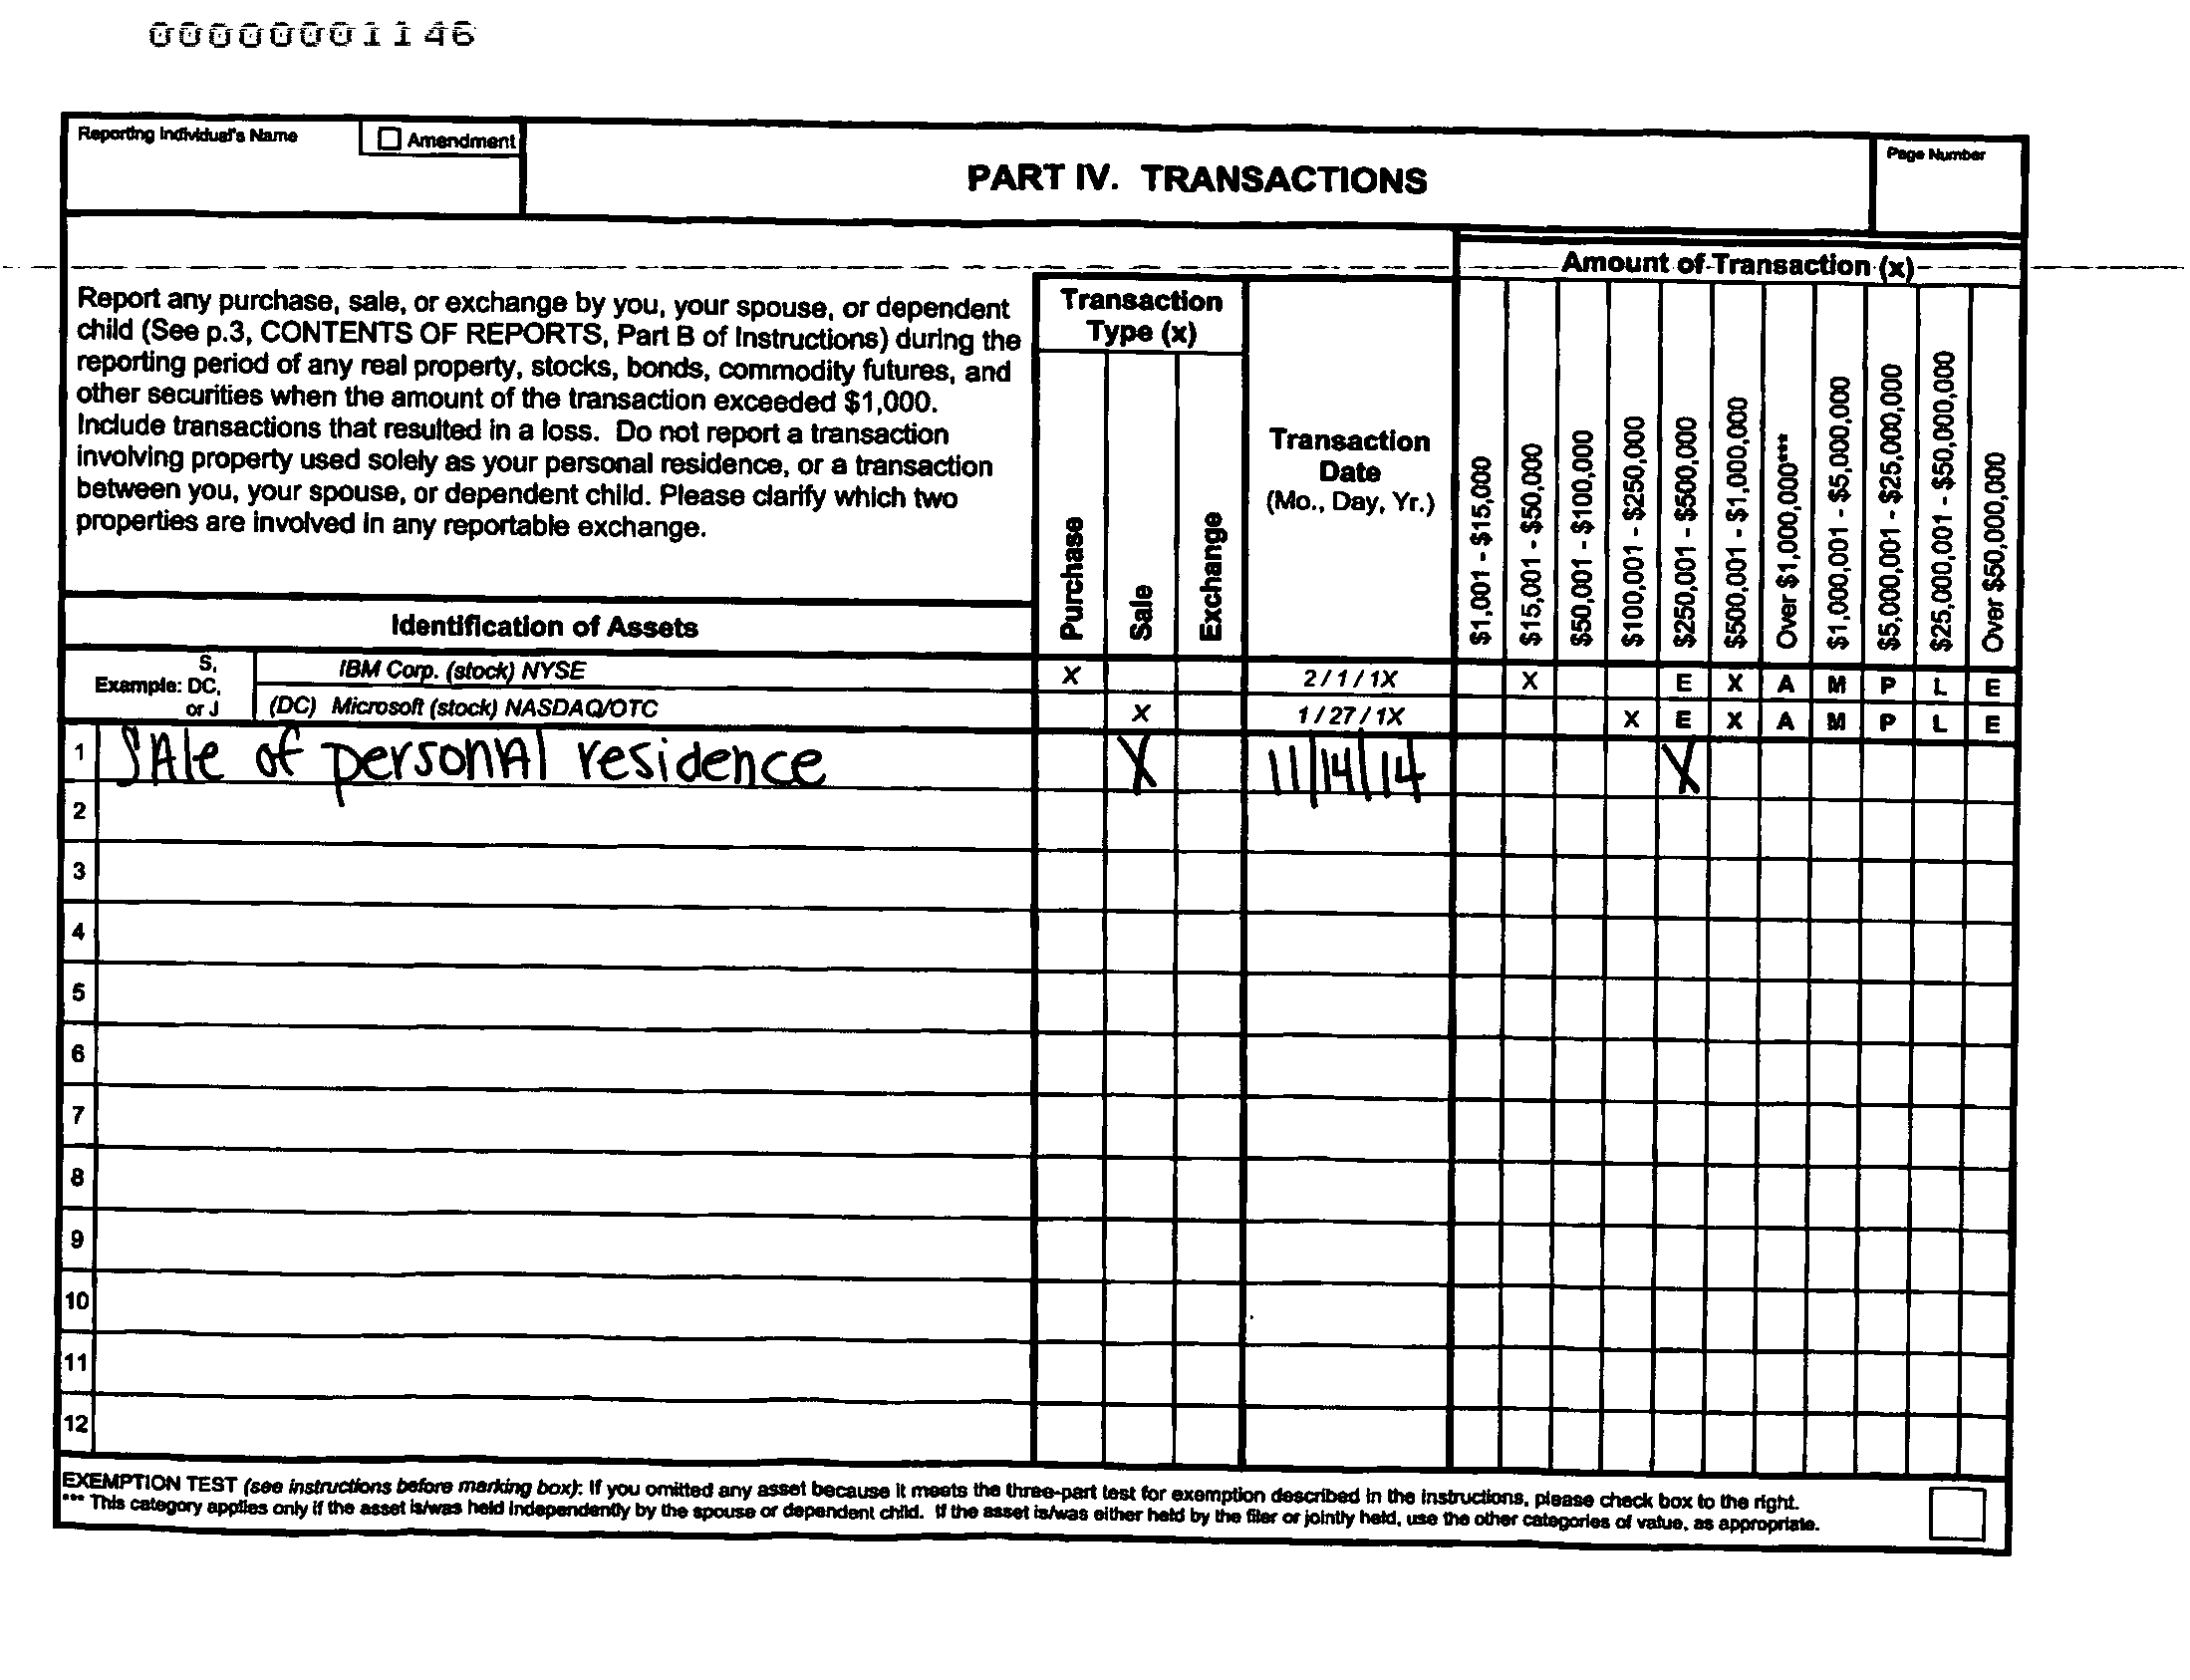 00000001146
Reporting Individual's Name
☐ Amendment
PART IV. TRANSACTIONS
Page Number
Amount of Transaction (x)
Report any purchase, sale, or exchange by you, your spouse, or dependent
child (See p.3, CONTENTS OF REPORTS, Part B of Instructions) during the
reporting period of any real property, stocks, bonds, commodity futures, and
other securities when the amount of the transaction exceeded $1,000.
Include transactions that resulted in a loss. Do not report a transaction
involving property used solely as your personal residence, or a transaction
between you, your spouse, or dependent child. Please clarify which two
properties are involved in any reportable exchange.
Transaction
Type (x)
Purchase
Sale
Exchange
Transaction
Date
(Mo., Day, Yr.)
$1,001 - $15,000
$15,001 - $50,000
$50,001 - $100,000
$100,001 - $250,000
$250,001 - $500,000
$500,001 - $1,000,000
Over $1,000,000***
$1,000,001 - $5,000,000
$5,000,001 - $25,000,000
$25,000,001 - $50,000,000
Over $50,000,000
Identification of Assets
Example: S, DC, or J
IBM Corp. (stock) NYSE X 2/1/1X X E X A M P L E
(DC) Microsoft (stock) NASDAQ/OTC X 1/27/1X X E X A M P L E
1 SAle of personAl residence X 11/14/14 X
2
3
4
5
6
7
8
9
10
11
12
EXEMPTION TEST (see instructions before marking box): If you omitted any asset because it meets the three-part test for exemption described in the instructions, please check box to the right.
*** This category applies only if the asset is/was held independently by the spouse or dependent child. If the asset is/was either held by the filer or jointly held, use the other categories of value, as appropriate.